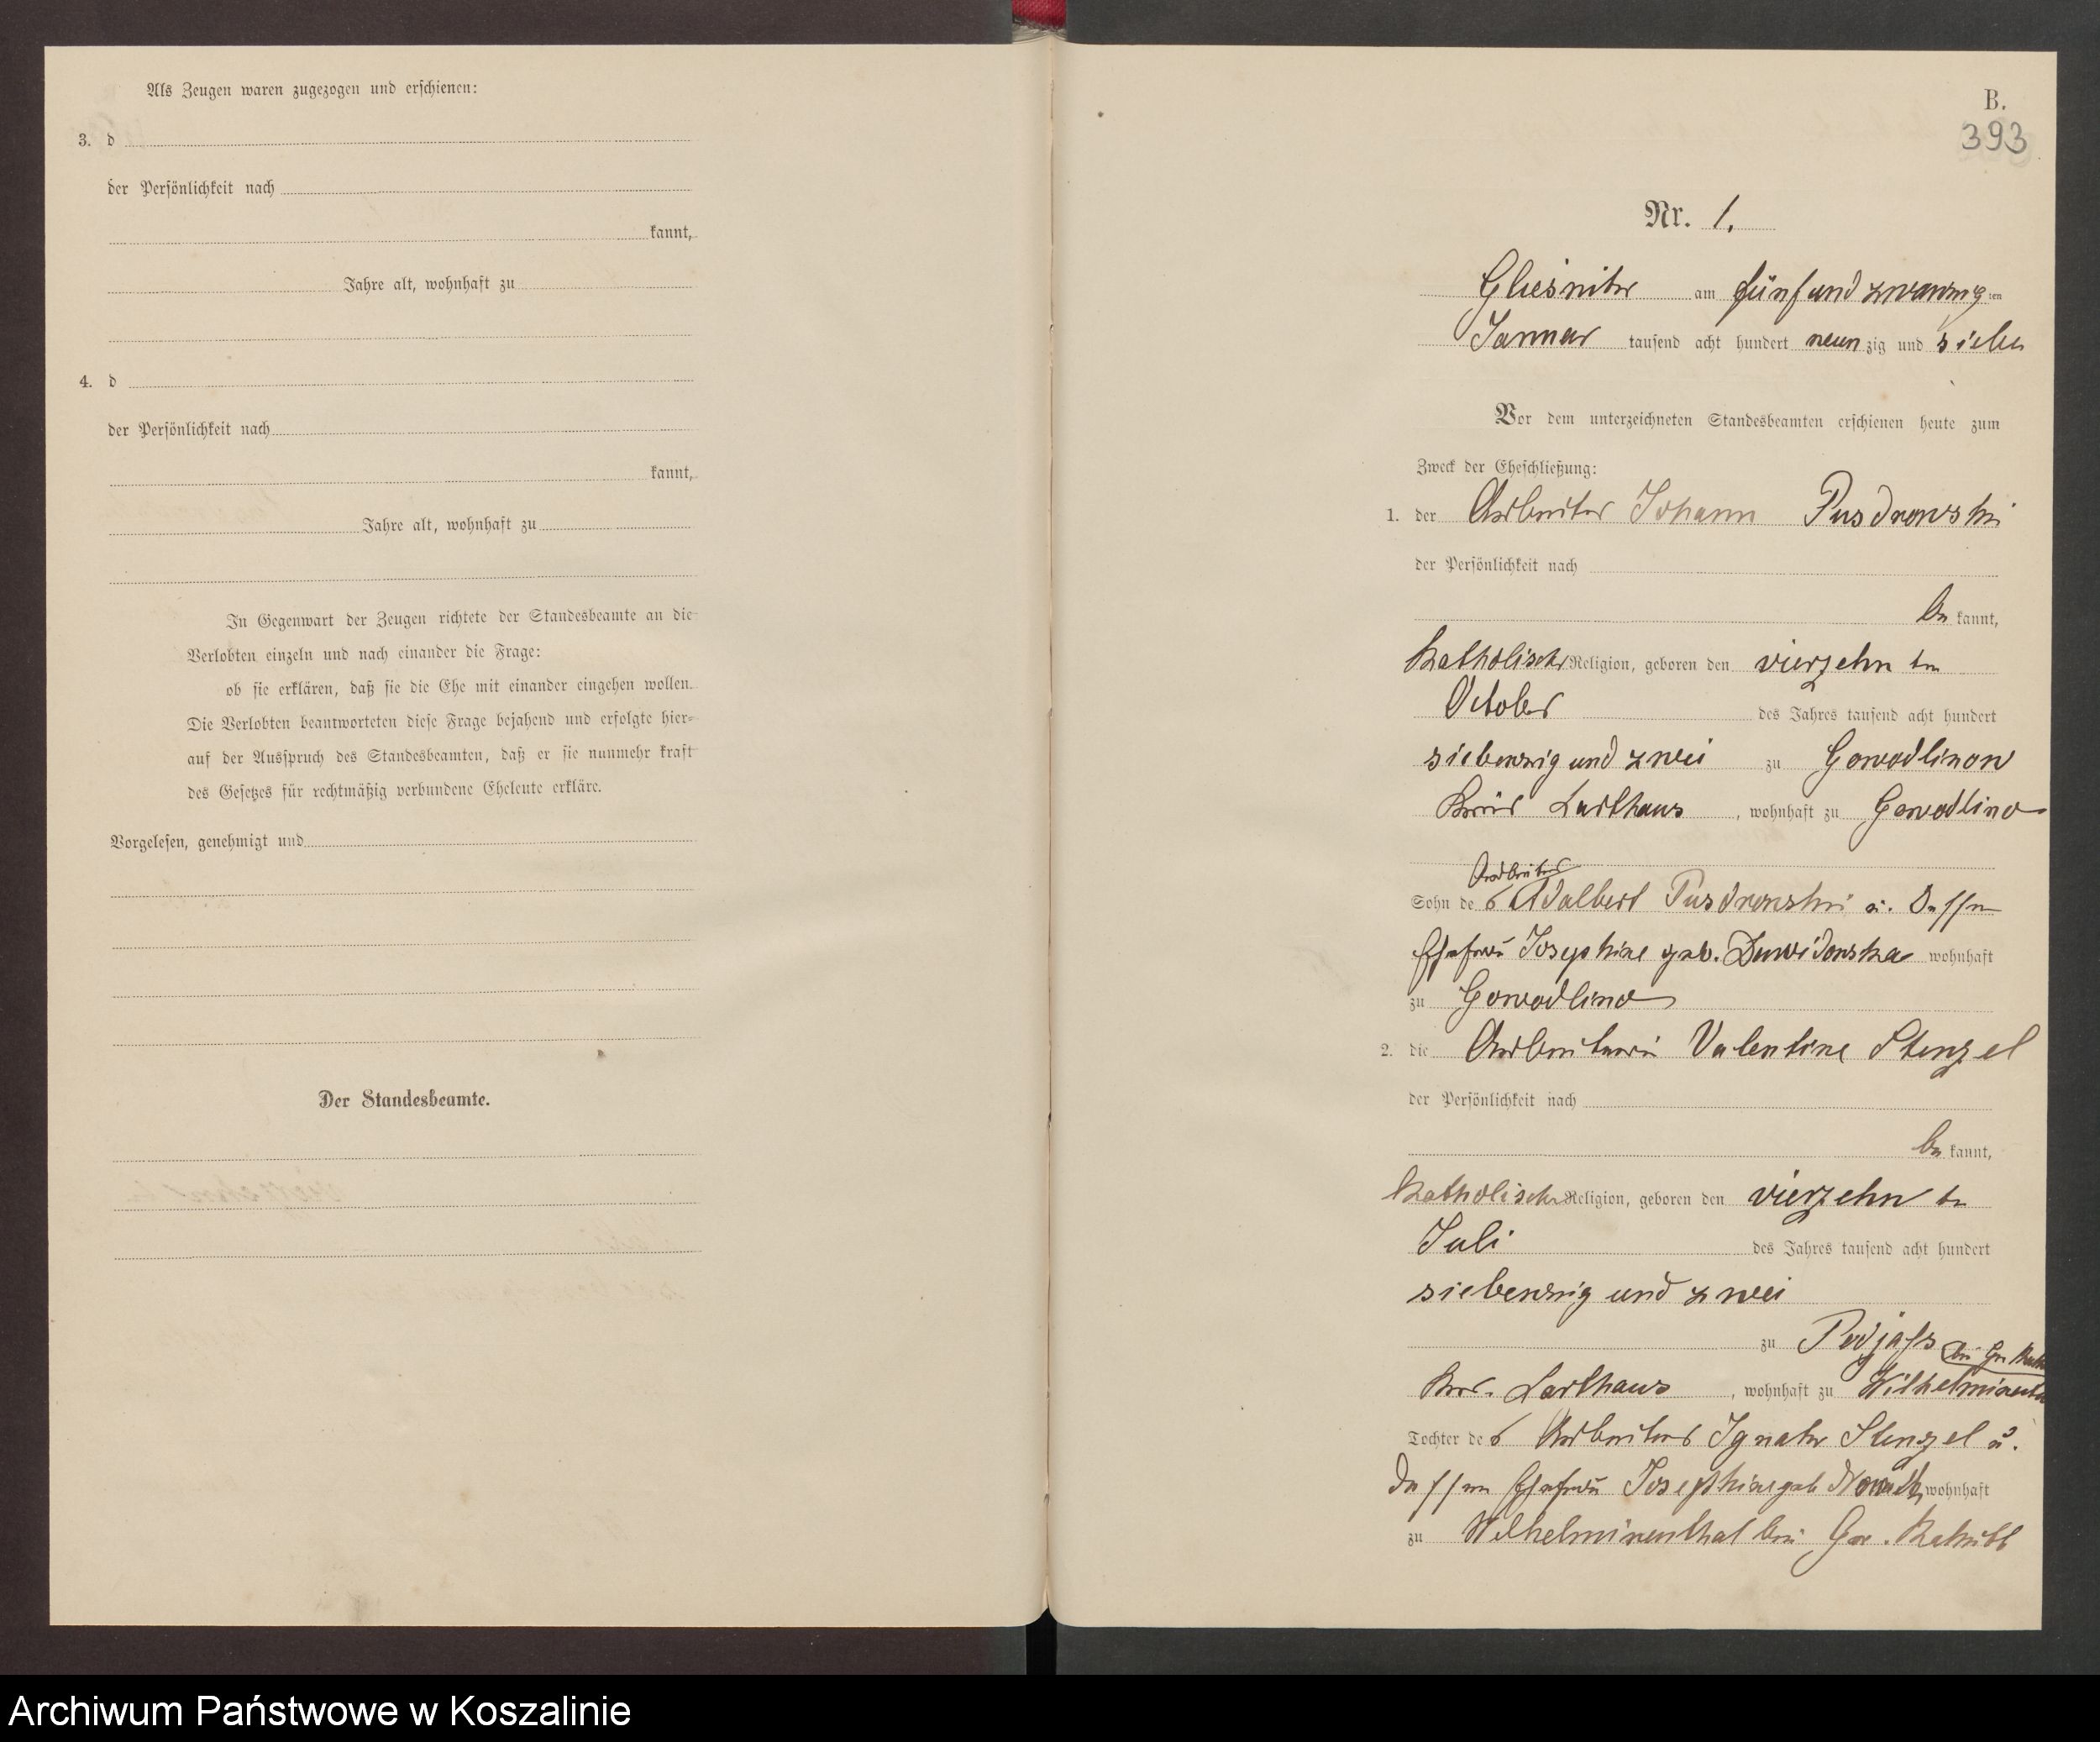 Als Zeugen waren zugezogen und erschienen:
3. d
der Persönlichkeit nach
kannt,
Jahre alt, wohnhaft zu
4. d
der Persönlichkeit nach
kannt,
Jahre alt, wohnhaft zu
In Gegenwart der Zeugen richtete der Standesbeamte an die
Verlobten einzeln und nach einander die Frage:
ob sie erklären, daß sie die Ehe mit einander eingehen wollen.
Die Verlobten beantworteten diese Frage bejahend und erfolgte hier-
auf der Ausspruch des Standesbeamten, daß er sie nunmehr kraft
des Gesetzes für rechtmäßig verbundene Eheleute erkläre.
Vorgelesen, genehmigt und
Der Standesbeamte.
B.
393
Nr. 1.
Gliesnitz am fünf und zwanzig ten
Januar tausend acht hundert neun zig und sieben
Vor dem unterzeichneten Standesbeamten erschienen heute zum
Zweck der Eheschließung:
1. der Arbeiter Johann Pusdrowski
der Persönlichkeit nach
be kannt,
katholischer Religion, geboren den vierzehn ten
October des Jahres tausend acht hundert
siebenzig und zwei zu Gowodlinow
Kreis Carthaus, wohnhaft zu Gowodlino
Arbeiters
Sohn des Adalbert Pusdrowski u. dessen
Ehefrau Josephine geb. Dawidowska wohnhaft
zu Gowodlino
2. die Arbeiterin Valentine Stenzel
der Persönlichkeit nach
be kannt,
katholischer Religion, geboren den vierzehn ten
Juli des Jahres tausend acht hundert
siebenzig und zwei
zu Podjass
bei Gr.
Kreis Carthaus, wohnhaft zu Wilhelminenthal
Tochter des Arbeiters Ignatz Stenzel u.
dessen Ehefrau Josephine geb. wohnhaft
zu Wilhelminenthal bei Gr. Rakitt
Archiwum Państwowe w Koszalinie